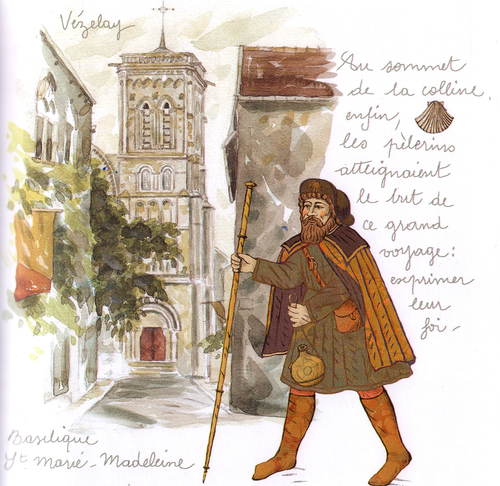 Vézelay
Au sommet
de la colline,
enfin,
les pèlerins
atteignaient
le but de
ce grand
voyage :
exprimer
leur
foi -
Basilique
St Marie-Madeleine